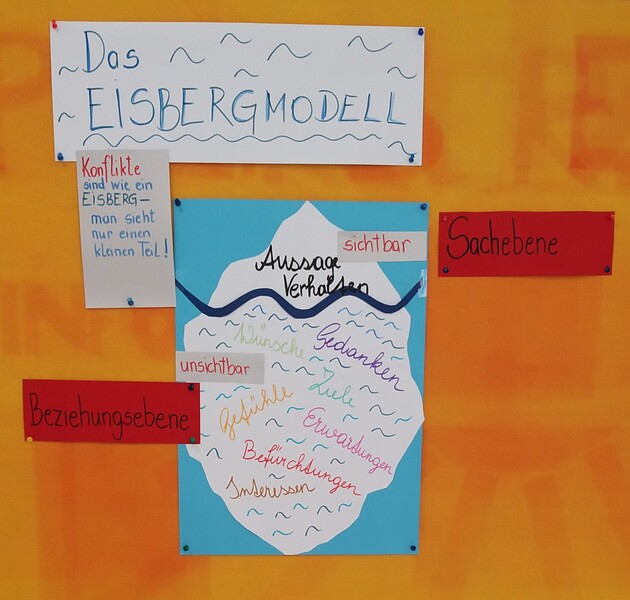 Das
EISBERGMODELL
Konflikte
sind wie ein
EISBERG–
man sieht
nur einen
kleinen Teil!
sichtbar
Sachebene
Aussage
Verhalten
Wünsche
Gedanken
unsichtbar
Ziele
Gefühle
Beziehungsebene
Erwartungen
Befürchtungen
Interessen